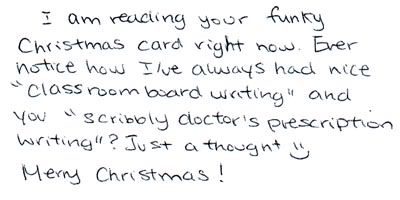 I am reading your funky
Christmas card right now. Ever
notice how I've always had nice
"classroom board writing" and
you "scribbly doctor's prescription
writing"? Just a thought :)
Merry Christmas!